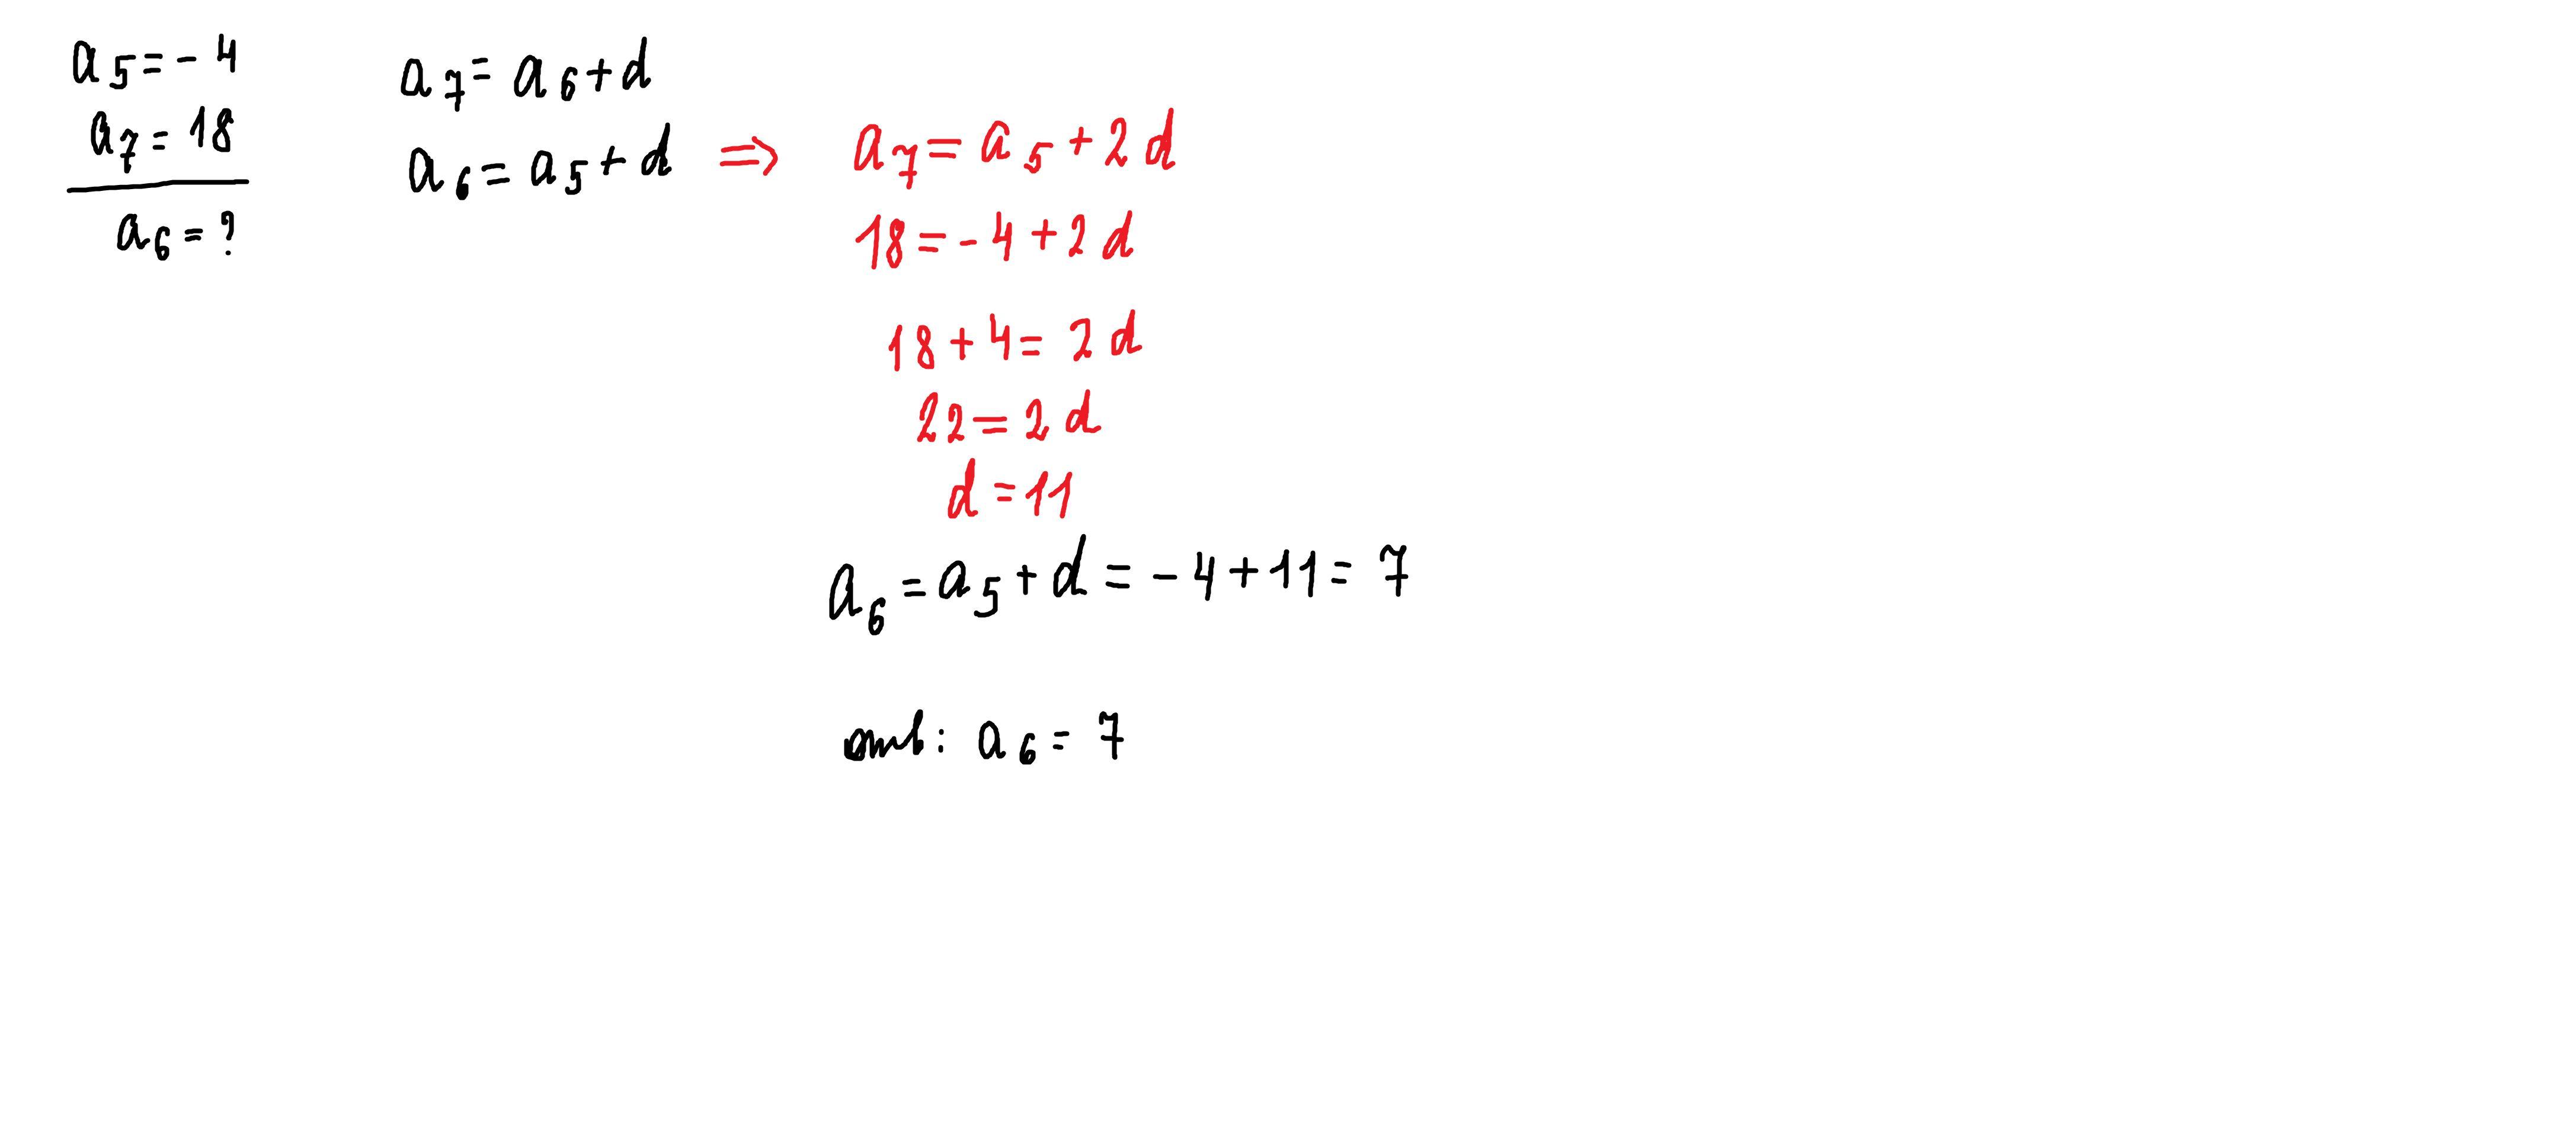 a₅ = - 4
a₇ = 18
a₆ = ?
a₇ = a₆ + d
a₆ = a₅ + d ⇒ a₇ = a₅ + 2d
18 = - 4 + 2d
18 + 4 = 2d
22 = 2d
d = 11
a₆ = a₅ + d = - 4 + 11 = 7
отв: a₆ = 7